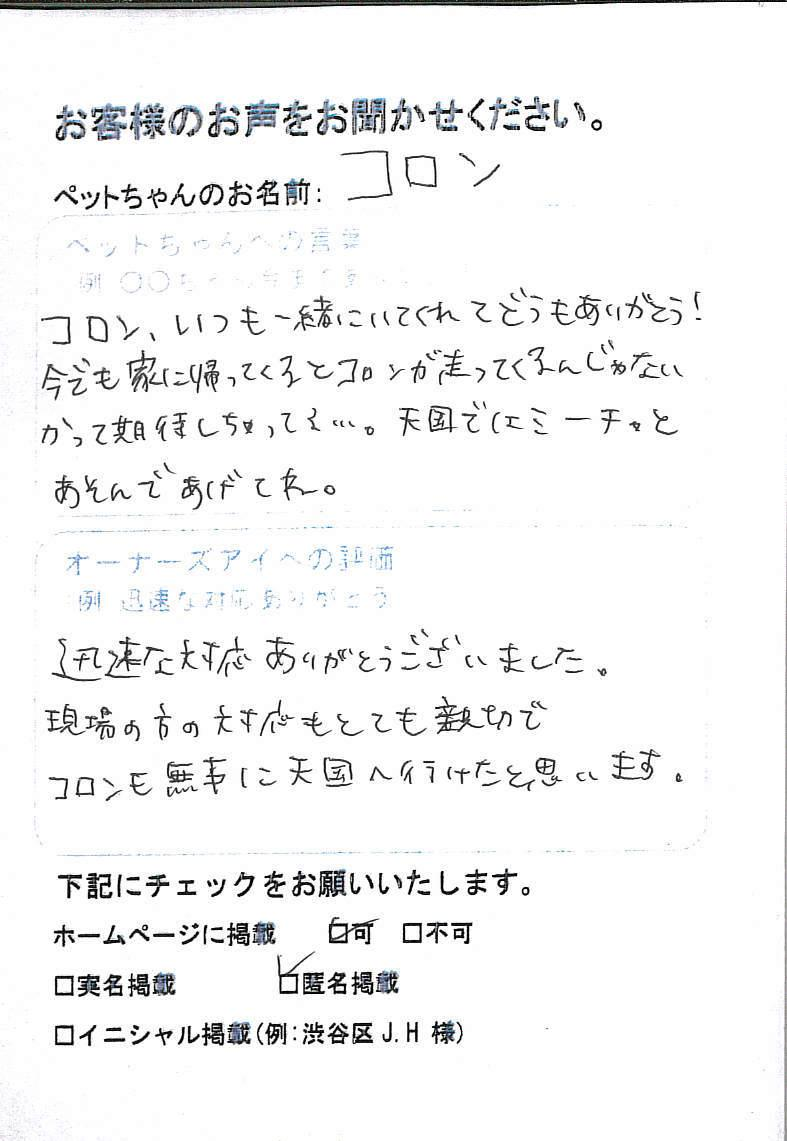 お客様のお声をお聞かせください。
ペットちゃんのお名前: コロン
ペットちゃんへの言葉
例 〇〇ちゃん
コロン、いつも一緒にいてくれてどうもありがとう!
今でも家に帰ってくるとコロンが走ってくるんじゃない
かって期待しちゃってる…。天国ではミーチャと
あそんであげてね。
オーナーズアイへの評価
例 迅速な対応ありがとう
迅速な対応ありがとうございました。
現場の方の対応もとても親切で
コロンも無事に天国へ行けたと思います。
下記にチェックをお願いいたします。
ホームページに掲載 ☑可 □不可
□実名掲載 ☑匿名掲載
□イニシャル掲載(例:渋谷区 J.H 様)